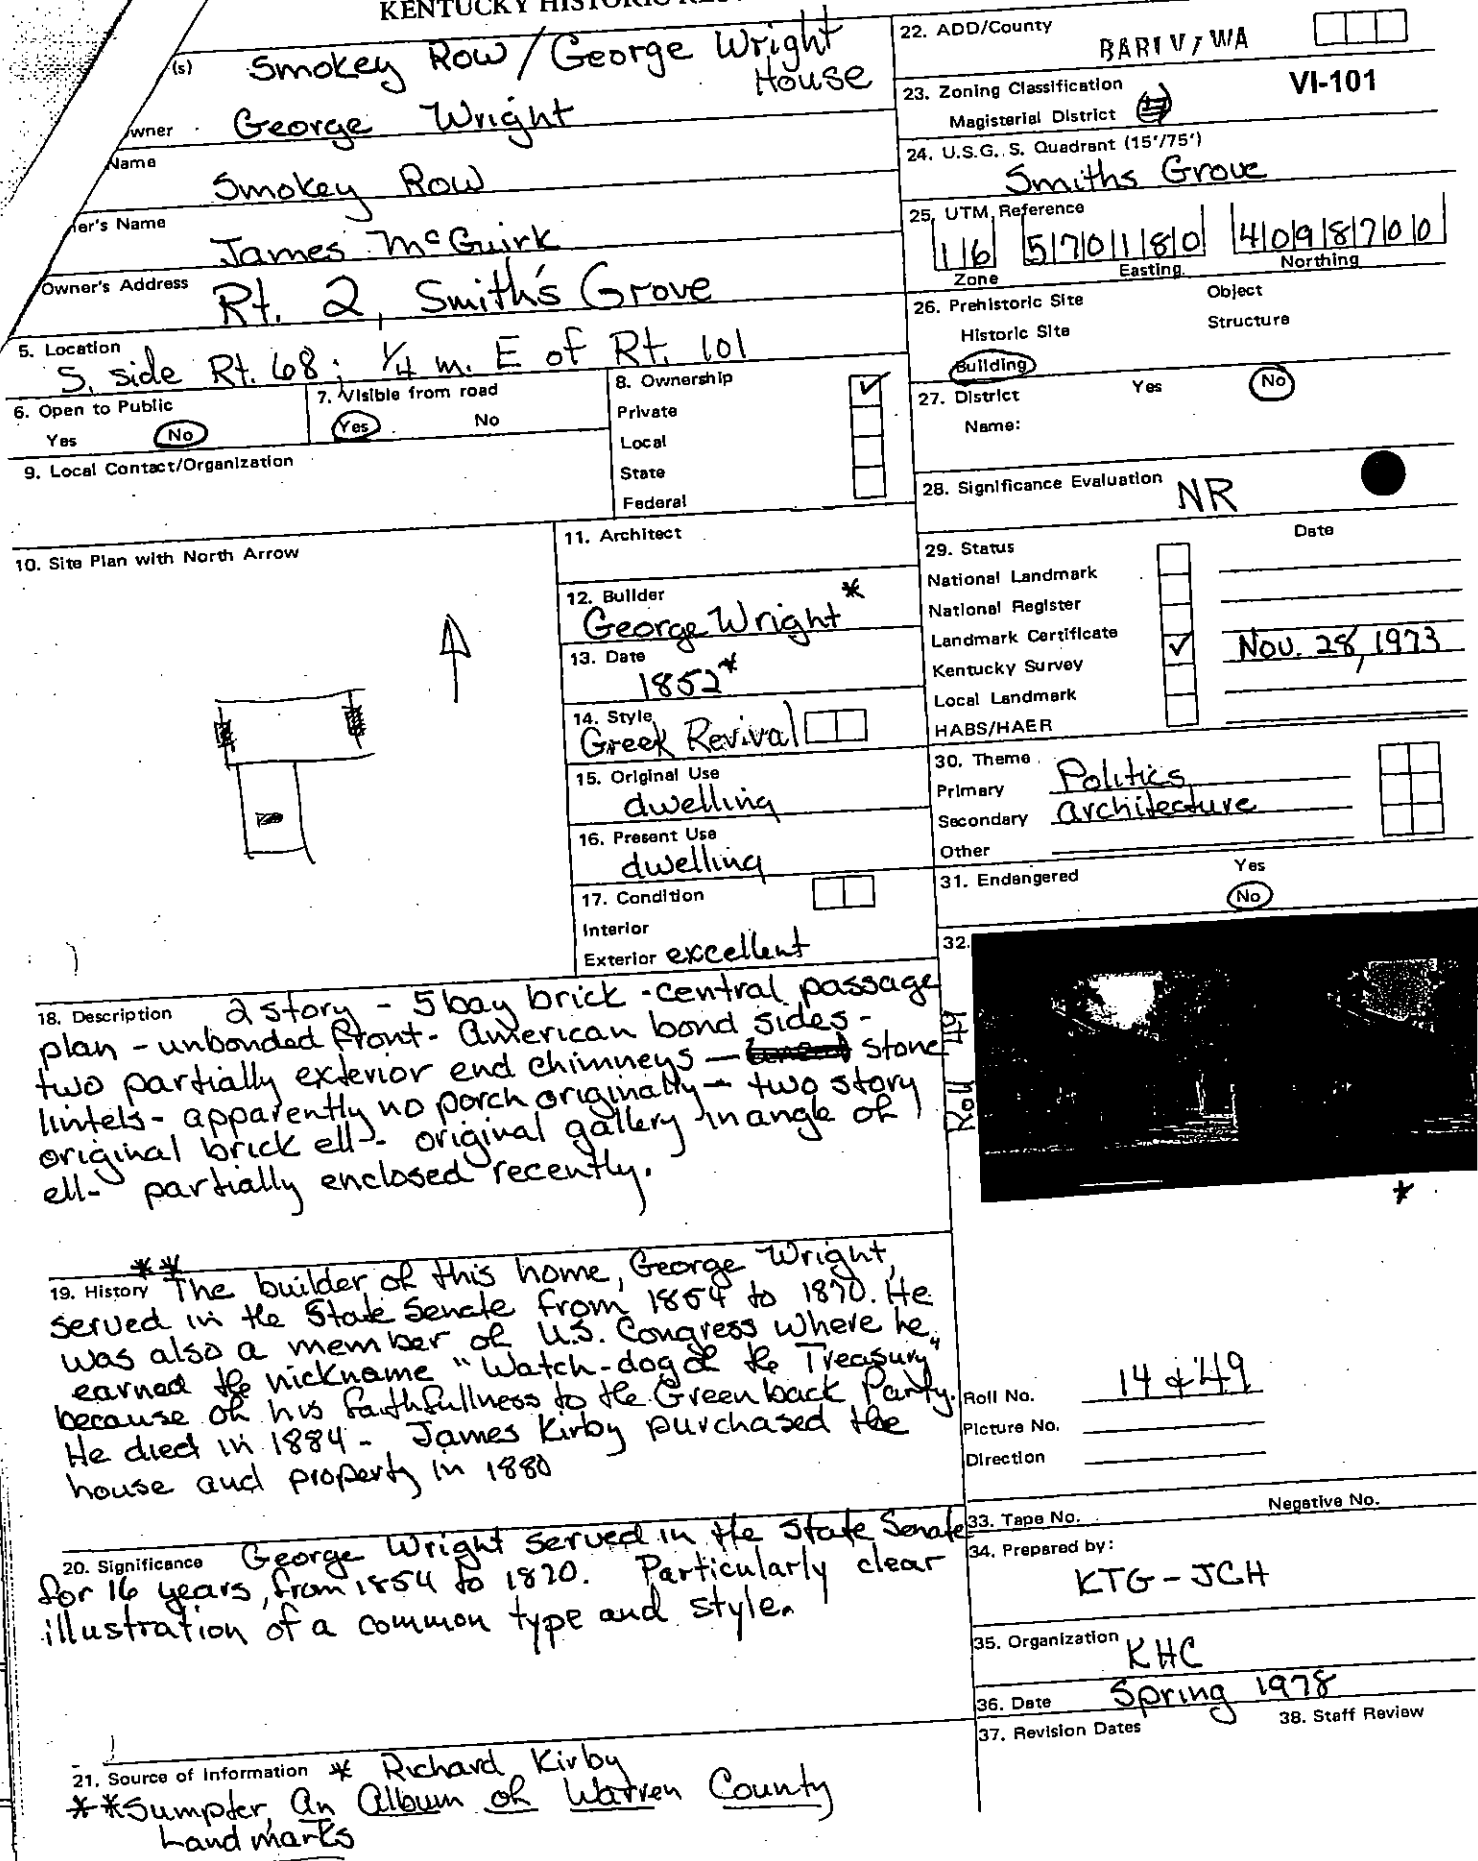 KENTUCKY HISTORIC
(s) Smokey Row / George Wright
House
wner George Wright
Name
Smokey Row
er's Name
James McGuirk
Owner's Address Rt. 2, Smith's Grove
5. Location
S. side Rt. 68; 1/4 m. E of Rt. 101
6. Open to Public
Yes No
7. Visible from road
Yes No
8. Ownership
Private
Local
State
Federal
9. Local Contact/Organization
10. Site Plan with North Arrow
11. Architect
12. Builder *
George Wright
13. Date
1852*
14. Style
Greek Revival
15. Original Use
dwelling
16. Present Use
dwelling
17. Condition
Interior
Exterior excellent
18. Description 2 story - 5 bay brick - central passage
plan - unbonded front - American bond sides -
two partially exterior end chimneys - stone
lintels - apparently no porch originally - two story
original brick ell - original gallery in angle of
ell - partially enclosed recently.
**
19. History The builder of this home, George Wright,
served in the State Senate from 1854 to 1870. He
was also a member of U.S. Congress where he
earned the nickname "Watch-dog of the Treasury"
because of his faithfullness to the Greenback Party.
He died in 1884 - James Kirby purchased the
house and property in 1880
20. Significance George Wright served in the State Senate
for 16 years, from 1854 to 1870. Particularly clear
illustration of a common type and style.
21. Source of Information * Richard Kirby
**Sumpter, An Album of Warren County
Landmarks
22. ADD/County
WA
23. Zoning Classification VI-101
Magisterial District
24. U.S.G.S. Quadrant (15'/75')
Smiths Grove
25. UTM Reference
16 570180 4098700
Zone Easting Northing
26. Prehistoric Site Object
Historic Site Structure
Building
27. District Yes No
Name:
28. Significance Evaluation NR
29. Status Date
National Landmark
National Register
Landmark Certificate
Kentucky Survey Nov. 28, 1973
Local Landmark
HABS/HAER
30. Theme
Primary Politics
Secondary architecture
Other
31. Endangered Yes
No
32.
Roll 49
*
Roll No. 14 & 49
Picture No.
Direction
33. Tape No. Negative No.
34. Prepared by:
KTG - JCH
35. Organization
KHC
36. Date Spring 1978
37. Revision Dates 38. Staff Review